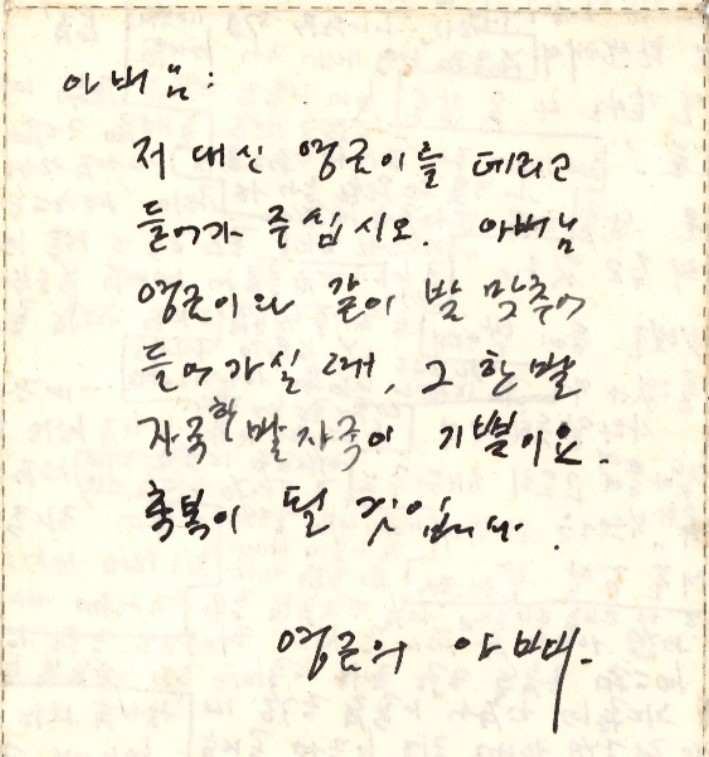 아버님:
저 대신 영근이를 데리고
들어가 주십시오. 아버님
영근이와 같이 발 맞추어
들어가실 때, 그 한발
자국 한발자국이 기쁨이요.
축복이 될 것입니다.
영근의 아빠가.